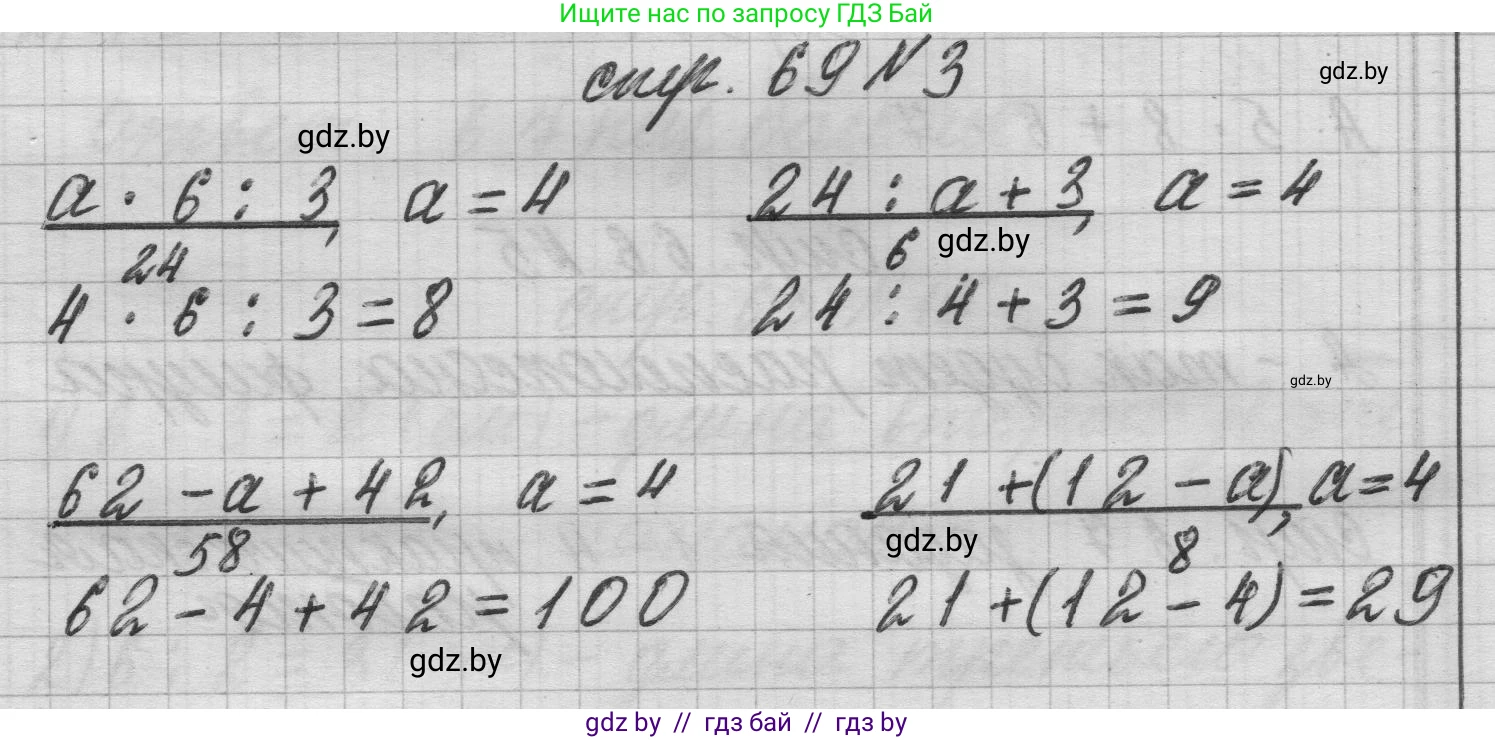 Ищите нас по запросу ГДЗ Бай
стр. 69 № 3
gdz.by
gdz.by
a · 6 : 3, a = 4
24 : a + 3, a = 4
24
6
gdz.by
4 · 6 : 3 = 8
24 : 4 + 3 = 9
gdz.by
62 - a + 42, a = 4
21 + (12 - a), a = 4
58
gdz.by
8
62 - 4 + 42 = 100
21 + (12 - 4) = 29
gdz.by
gdz by // гдз бай // гдз by